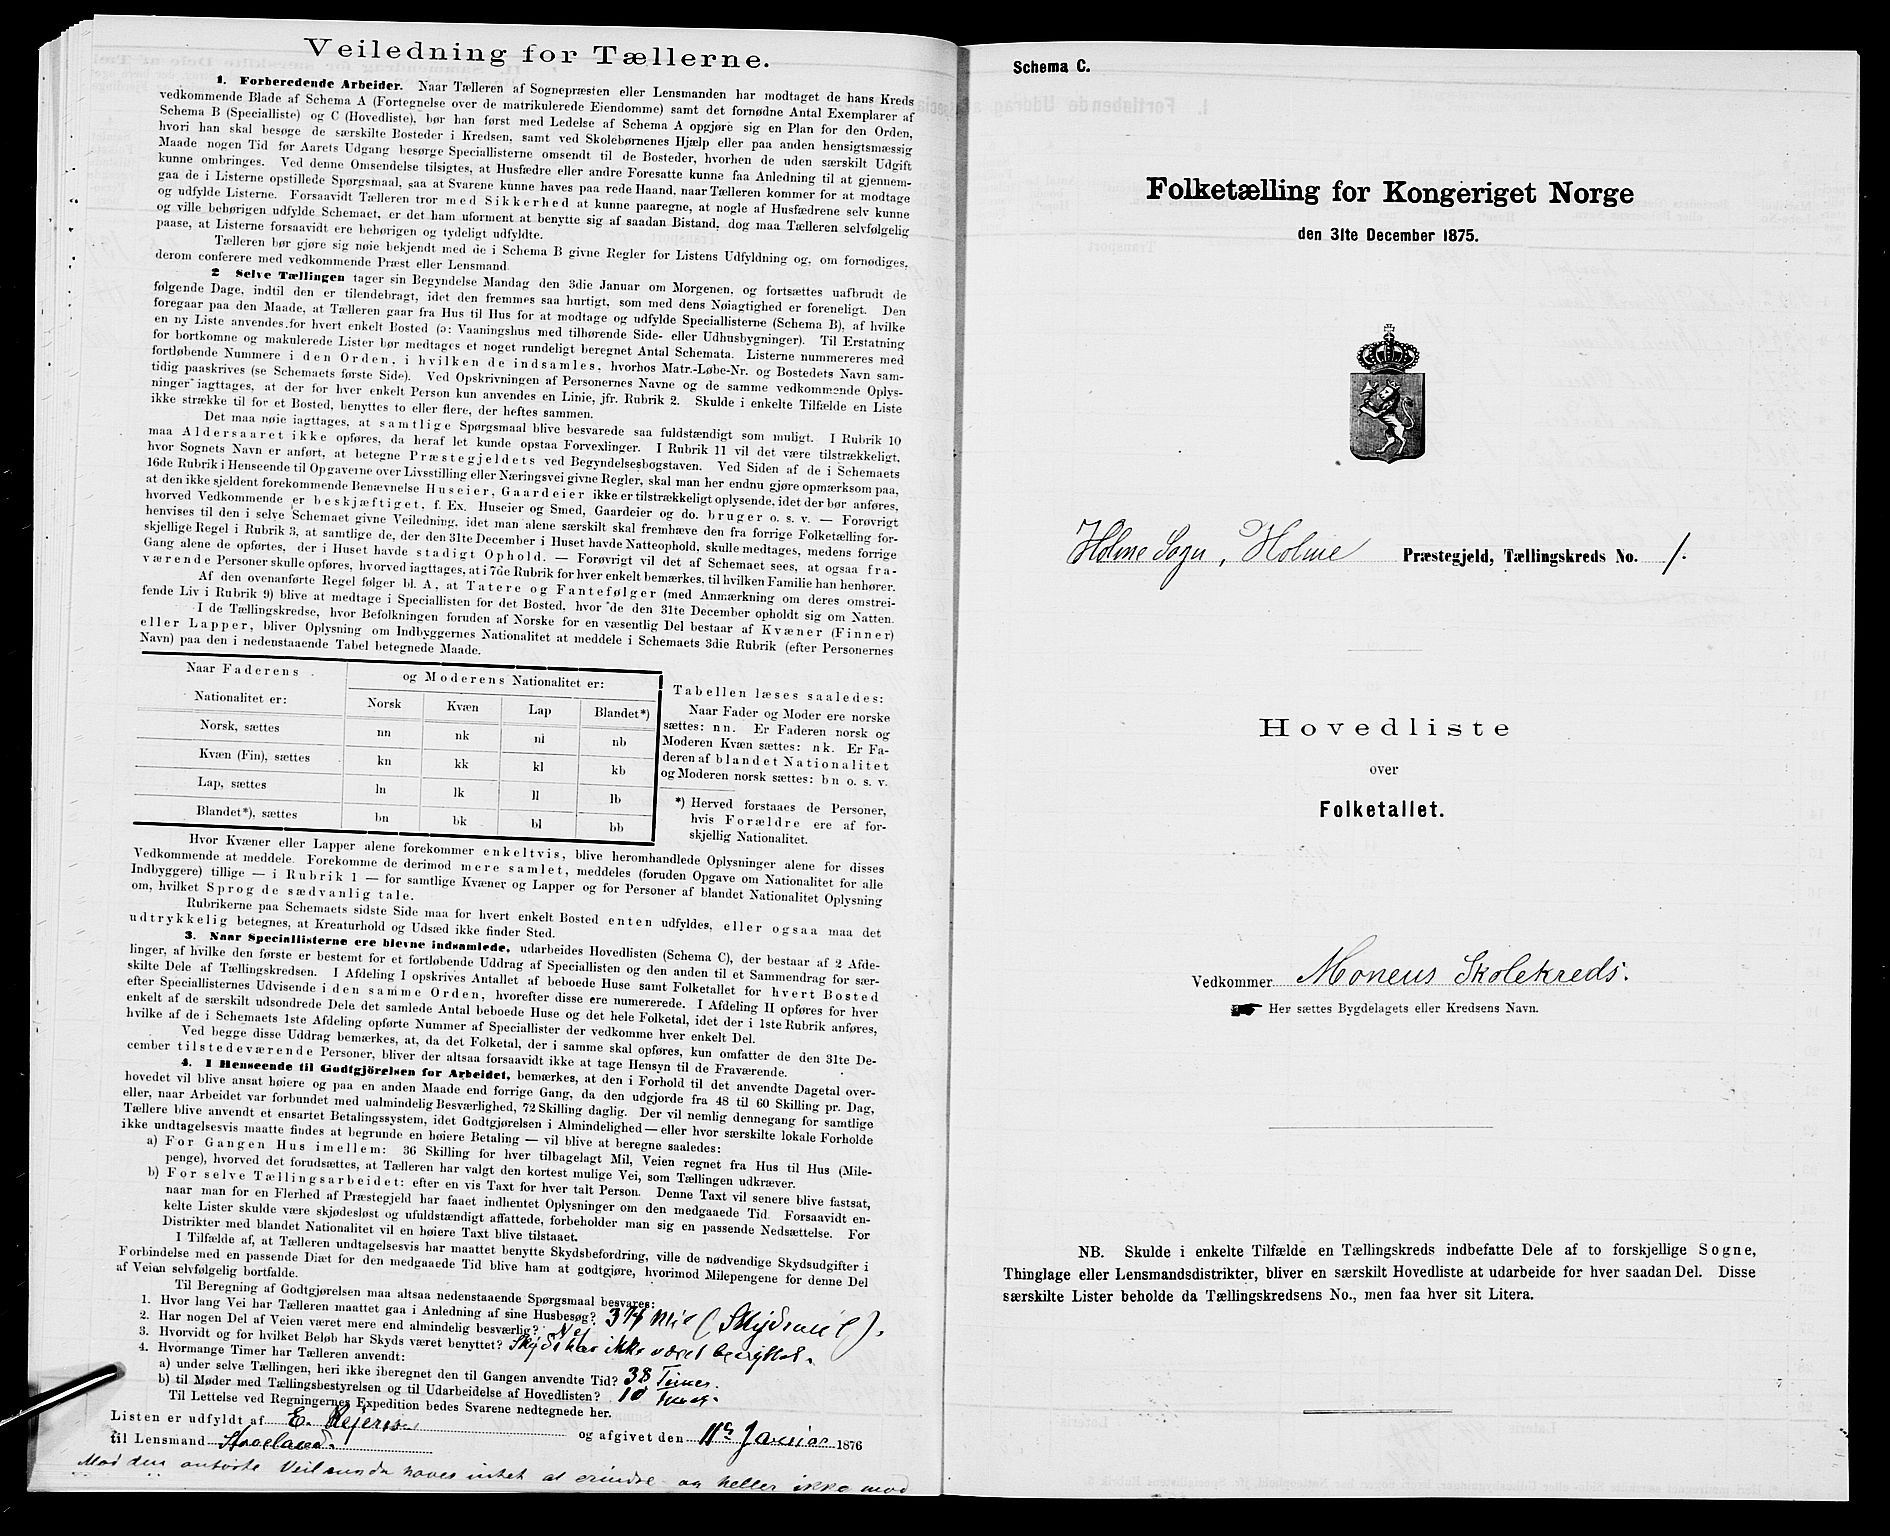 Veiledning for Tællerne.
1. Forberedende Arbeider. Naar Tælleren af Sognepræsten eller Lensmanden har modtaget de hans Kreds
vedkommende Blade af Schema A (Fortegnelse over de matrikulerede Eiendomme) samt det fornødne Antal Exemplarer af
Schema B (Specialliste) og C (Hovedliste), bør han først med Ledelse af Schema A opgjøre sig en Plan for den Orden,
hvori han skal besøge de særskilte Bosteder i Kredsen, samt ved Skolebørnenes Hjælp eller paa anden hensigtsmæssig
Maade nogen Tid før Aarets Udgang besørge Speciallisterne omsendt til de Bosteder, hvorhen de uden særskilt Udgift
kunne ombringes. Ved denne Omsendelse tilsigtes, at Husfædre eller andre Foresatte kunne faa Anledning til at gjennem-
gaa de i Listerne opstillede Spørgsmaal, saa at Svarene kunne haves paa rede Haand, naar Tælleren kommer for at modtage
og udfylde Listerne. Forsaavidt Tælleren tror med Sikkerhed at kunne paaregne, at nogle af Husfædrene selv kunne
og ville behørigen udfylde Schemaet, er det ham uforment at benytte sig af saadan Bistand, dog maa Tælleren selvfølgelig
paase, at Listerne forsaavidt ere behørigen og tydeligt udfyldte.
Tælleren bør gjøre sig nøie bekjendt med de i Schema B givne Regler for Listens Udfyldning og, om fornødiges,
derom conferere med vedkommende Præst eller Lensmand.
2 Selve Tællingen tager sin Begyndelse Mandag den 3die Januar om Morgenen, og fortsættes uafbrudt de
følgende Dage, indtil den er tilendebragt, idet den fremmes saa hurtigt, som med dens Nøiagtighed er foreneligt. Den
foregaar paa den Maade, at Tælleren gaar fra Hus til Hus for at modtage og udfylde Speciallisterne (Schema B), af hvilke
en ny Liste anvendes for hvert enkelt Bosted (ɔ: Vaaningshus med tilhørende Side- eller Udhusbygninger). Til Erstatning
for bortkomne og makulerede Lister bør medtages et noget rundeligt beregnet Antal Schemata. Listerne nummereres med
fortløbende Nummere i den Orden, i hvilken de indsamles, hvorhos Matr.-Løbe-Nr. og Bostedets Navn sam-
tidig paaskrives (se Schemaets første Side). Ved Opskrivningen af Personernes Navne og de samme vedkommende Oplys-
ninger iagttages, at der for hver enkelt Person kun anvendes en Linie, jfr. Rubrik 2. Skulde i enkelte Tilfælde en Liste
ikke strække til for et Bosted, benyttes to eller flere, der heftes sammen.
Det maa nøie iagttages, at samtlige Spørgsmaal blive besvarede saa fuldstændigt som muligt. I Rubrik 10
maa Aldersaaret ikke opføres, da heraf let kunde opstaa Forvexlinger. I Rubrik 11 vil det være tilstrækkeligt,
hvor Sognets Navn er anført, at betegne Præstegjeldets ved Begyndelsesbogstaven. Ved Siden af de i Schemaets
16de Rubrik i Henseende til Opgaverne over Livsstilling eller Næringsvei givne Regler, skal man her endnu gjøre opmærksom paa,
at den ikke sjeldent forekommende Benævnelse Huseier, Gaardeier ikke er tilstrækkeligt oplysende, idet der bør anføres,
hvorved Vedkommende er beskjæftiget, f. Ex. Huseier og Smed, Gaardeier og do. bruger o. s. v. — Forøvrigt
henvises til den i selve Schemaet givne Veiledning, idet man alene særskilt skal fremhæve den fra forrige Folketælling for-
skjellige Regel i Rubrik 3, at samtlige de, der den 31te December i Huset havde Natteophold, skulle medtages, medens forrige
Gang alene de opførtes, der i Huset havde stadigt Ophold. — Forøvrigt vil det af Schemaet sees, at ogsaa fra-
værende Personer skulle opføres, hvorved iagttages, at i 7de Rubrik for hver enkelt bemærkes, til hvilken Familie han henhører.
Af den ovenanførte Regel følger bl. A., at Tatere og Fantefølger (med Anmærkning om deres omstrei-
fende Liv i Rubrik 9) blive at medtage i Speciallisten for det Bosted, hvor de den 31te December opholdt sig om Natten.
I de Tællingskredse, hvor Befolkningen foruden af Norske for en væsentlig Del bestaar af Kvæner (Finner)
eller Lapper, bliver Oplysning om Indbyggernes Nationalitet at meddele i Schemaets 3die Rubrik (efter Personernes
Navn) paa den i nedenstaaende Tabel betegnede Maade.
Naar Faderens Nationalitet er: og Moderens Nationalitet er:
Norsk Kvæn Lap Blandet*)
Norsk, sættes nn nk nl nb
Kvæn (Fin), sættes kn kk kl kb
Lap, sættes ln lk ll lb
Blandet*), sættes bn bk bl bb
Tabellen læses saaledes:
Naar Fader og Moder ere norske
sættes: nn. Er Faderen norsk og
Moderen Kvæn sættes: nk. Er Fa-
deren af blandet Nationalitet
og Moderen norsk sættes: bn o. s. v.
*) Herved forstaaes de Personer,
hvis Forældre ere af for-
skjellig Nationalitet.
Hvor Kvæner eller Lapper alene forekommer enkeltvis, blive heromhandlede Oplysninger alene for disses
Vedkommende at meddele. Forekomme de derimod mere samlet, meddeles (foruden Opgave om Nationalitet for alle
Indbyggere) tillige — i Rubrik 1 — for samtlige Kvæner og Lapper og for Personer af blandet Nationalitet Oplysning
om, hvilket Sprog de sædvanlig tale.
Rubrikerne paa Schemaets sidste Side maa for hvert enkelt Bosted enten udfyldes, eller ogsaa maa det
udtrykkelig betegnes, at Kreaturhold og Udsæd ikke finder Sted.
3. Naar Speciallisterne ere blevne indsamlede, udarbeides Hovedlisten (Schema C), der bestaar af 2 Afde-
linger, af hvilke den første er bestemt for et fortløbende Uddrag af Speciallisten og den anden til et Sammendrag for sær-
skilte Dele af Tællingskredsen. I Afdeling I opskrives Antallet af beboede Huse samt Folketallet for hvert Bosted
efter Speciallisternes Udvisende i den samme Orden, hvorefter disse ere numererede. I Afdeling II opføres for hver
enkelt af de særskilt udsondrede Dele det samlede Antal beboede Huse og det hele Folketal, idet der i 1ste Rubrik anføres,
hvilke af de i Schemaets 1ste Afdeling opførte Nummer af Speciallister der vedkomme hver enkelt Del.
Ved begge disse Uddrag bemærkes, at, da det Folketal, der i samme skal opføres, kun omfatter de den 31te De-
cember tilstedeværende Personer, bliver der altsaa forsaavidt ikke at tage Hensyn til de Fraværende.
4. I Henseende til Godtgjörelsen for Arbeidet, bemærkes, at den i Forhold til det anvendte Dagetal over-
hovedet vil blive ansat høiere og paa en anden Maade end forrige Gang, da den udgjorde fra 48 til 60 Skilling pr. Dag,
eller, naar Arbeidet var forbundet med ualmindelig Besværlighed, 72 Skilling daglig. Der vil nemlig dennegang for samtlige
Tællere blive anvendt et ensartet Betalingssystem, idet Godtgjørelsen i Almindelighed — eller hvor særskilte lokale Forholde
ikke undtagelsesvis maatte findes at begrunde en høiere Betaling — vil blive at beregne saaledes:
a) For Gangen Hus imellem: 36 Skilling for hver tilbagelagt Mil, Veien regnet fra Hus til Hus (Mile-
penge), hvorved det forudsættes, at Tælleren har valgt den kortest mulige Vei, som Tællingen udkræver.
b) For selve Tællingsarbeidet: efter en vis Taxt for hver talt Person. Denne Taxt vil senere blive fastsat,
naar man for en Flerhed af Præstegjeld har faaet indhentet Oplysninger om den medgaaede Tid. Forsaavidt en-
kelte Lister skulde være skjødesløst og ufuldstændigt affattede, forbeholder man sig en passende Nedsættelse. For
Distrikter med blandet Nationalitet vil en høiere Taxt blive tilstaaet.
I Tilfælde af, at Tælleren undtagelsesvis har maattet benytte Skydsbefordring, ville de nødvendige Skydsudgifter i
Forbindelse med en passende Diæt for den medgaaede Tid blive ham at godtgjøre, hvorimod Milepengene for denne Del
af Veien selvfølgelig bortfalde.
Til Beregning af Godtgjørelsen maa altsaa nedenstaaende Spørgsmaal besvares:
1. Hvor lang Vei har Tælleren maattet gaa i Anledning af sine Husbesøg? Mil (Skydsmil).
2. Har nogen Del af Veien været mere end almindelig besværlig? Nei
3. Hvorvidt og for hvilket Beløb har Skyds været benyttet? Skyds har ikke været benyttet.
4. Hvormange Timer har Tælleren anvendt:
a) under selve Tællingen, heri ikke iberegnet den til Gangen anvendte Tid? 38 Timer.
b) til Møder med Tællingsbestyrelsen og til Udarbeidelse af Hovedlisten? 10 Timer.
Til Lettelse ved Regningernes Expedition bedes Svarene nedtegnede her.
Listen er udfyldt af E. Rejers og afgivet den 11te Januar 1876
til Lensmand
Mod den anførte Veilængde haves intet at erindre og heller ikke mod
Schema C.
Folketælling for Kongeriget Norge
den 31te December 1875.
Holme Sogn, Holme Præstegjeld, Tællingskreds No. 1.
Hovedliste
over
Folketallet.
Vedkommer Monens Skolekreds.
Her sættes Bygdelagets eller Kredsens Navn.
NB. Skulde i enkelte Tilfælde en Tællingskreds indbefatte Dele af to forskjellige Sogne,
Thinglage eller Lensmandsdistrikter, bliver en særskilt Hovedliste at udarbeide for hver saadan Del. Disse
særskilte Lister beholde da Tællingskredsens No., men faa hver sit Litera.